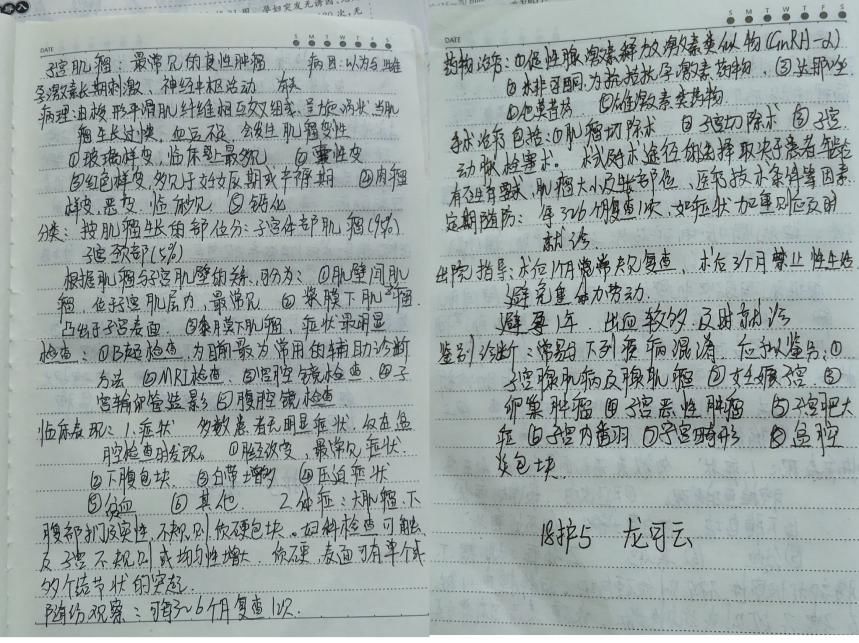 DATE
S M T W T F S
子宫肌瘤：最常见的良性肿瘤 病因：以为与雌
孕激素长期刺激、神经中枢活动 有关
病理：由梭形平滑肌纤维相互交叉组成，呈旋涡状 当肌
瘤生长过快，血运不足，会发生肌瘤变性
①玻璃样变，临床上最多见 ②囊性变
③红色样变，多见于妊娠期或产褥期 ④肉瘤
样变，恶变，临床少见 ⑤钙化
分类：按肌瘤生长的部位分：子宫体部肌瘤(95%)
子宫颈部(5%)
根据肌瘤与子宫肌壁的关系，可分为：①肌壁间肌
瘤，位于子宫肌层内，最常见 ②浆膜下肌瘤
凸出于子宫表面 ③黏膜下肌瘤，症状最明显
检查：①B超检查，为目前最为常用的辅助诊断
方法 ②MRI检查，③宫腔镜检查，④子
宫输卵管造影 ⑤腹腔镜检查
临床表现：1.症状 多数患者无明显症状，仅在盆
腔检查时发现。①月经改变，最常见症状
②下腹包块 ③白带增多 ④压迫症状
⑤贫血 ⑥其他 2.体征：大肌瘤，下
腹部扪及实性 不规则 质硬包块。妇科检查可触
及子宫不规则或均匀性增大，质硬，表面可有单个或
多个结节状的突起
随访观察：可每3~6个月复查1次
DATE
S M T W T F S
药物治疗：①促性腺激素释放激素类似物(GnRH-a)
②米非司酮，为抗孕激素药物，③
④ ⑤雄激素类药物
手术治疗包括：①肌瘤切除术 ②子宫切除术 ③子宫
动脉栓塞术。术式及手术途径的选择取决于患者年龄
有无生育要求，肌瘤大小及生长部位，医疗技术条件等因素
定期随访：每3~6个月复查1次，如症状加重则应及时
就诊
出院指导：术后1个月常规复查，术后3个月禁止性生活
避免重体力劳动
避孕1年 出血较多 及时就诊
鉴别诊断：常易与下列疾病混淆，应予以鉴别：①
子宫腺肌病及腺肌瘤 ②妊娠子宫 ③
卵巢肿瘤 ④子宫恶性肿瘤 ⑤子宫肥大
症 ⑥子宫内翻 ⑦子宫畸形 ⑧盆腔
炎包块
18护5 龙可云